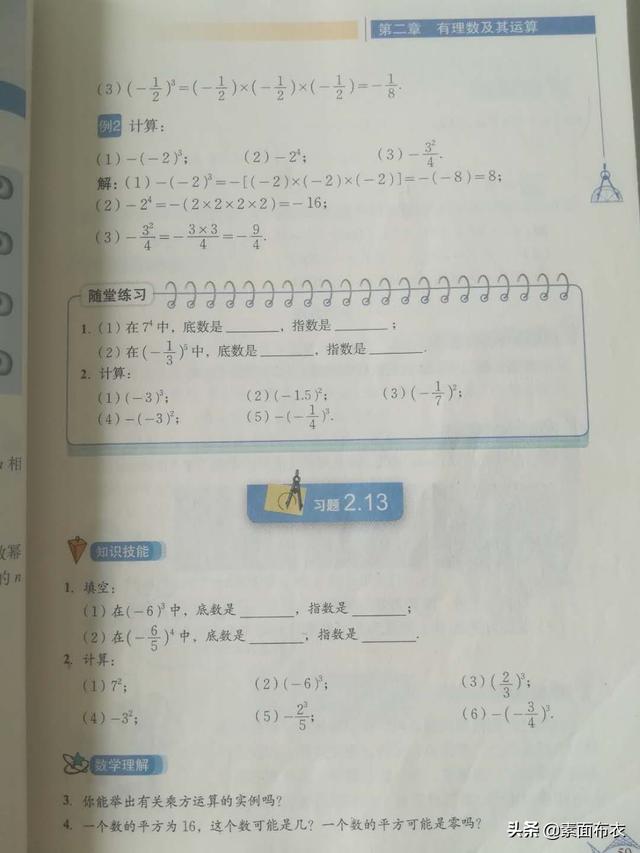 第二章 有理数及其运算
(3)(-1/2)³=(-1/2)×(-1/2)×(-1/2)=-1/8.
例2 计算:
(1)-(-2)³; (2)-2⁴; (3)-3²/4.
解:(1)-(-2)³=-[(-2)×(-2)×(-2)]=-(-8)=8;
(2)-2⁴=-(2×2×2×2)=-16;
(3)-3²/4=-3×3/4=-9/4.
随堂练习
1. (1)在7⁴中,底数是______,指数是______;
(2)在(-1/3)⁵中,底数是______,指数是______.
2. 计算:
(1)(-3)³; (2)(-1.5)²; (3)(-1/7)²;
(4)-(-3)²; (5)-(-1/4)³.
相
习题 2.13
数幂
的n
知识技能
1. 填空:
(1)在(-6)³中,底数是______,指数是______;
(2)在(-6/5)⁴中,底数是______,指数是______.
2. 计算:
(1)7²; (2)(-6)³; (3)(2/3)³;
(4)-3²; (5)-2³/5; (6)-(-3/4)³.
数学理解
3. 你能举出有关乘方运算的实例吗?
4. 一个数的平方为16,这个数可能是几?一个数的平方可能是零吗?
头条 @素面布衣
59